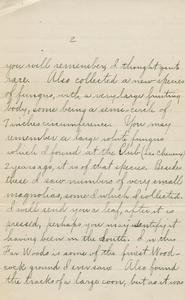 2
you will remember, I thought quite
rare. Also collected a new species
of fungus, with a very large fruiting
body, some being a semi-circle of
7 inches circumference. You may
remember a large white fungus
which I found at the Club (in Cheever)
2 years ago, it is of that species. Besides
these I saw numbers of very small
magnolias, some of which I collected.
I will send you a leaf, after it is
pressed, perhaps you may identify it
having been in the South. In the
Far Woods is some of the finest Wood-
cock ground I ever saw. Also found
the track of a large coon, but as it was